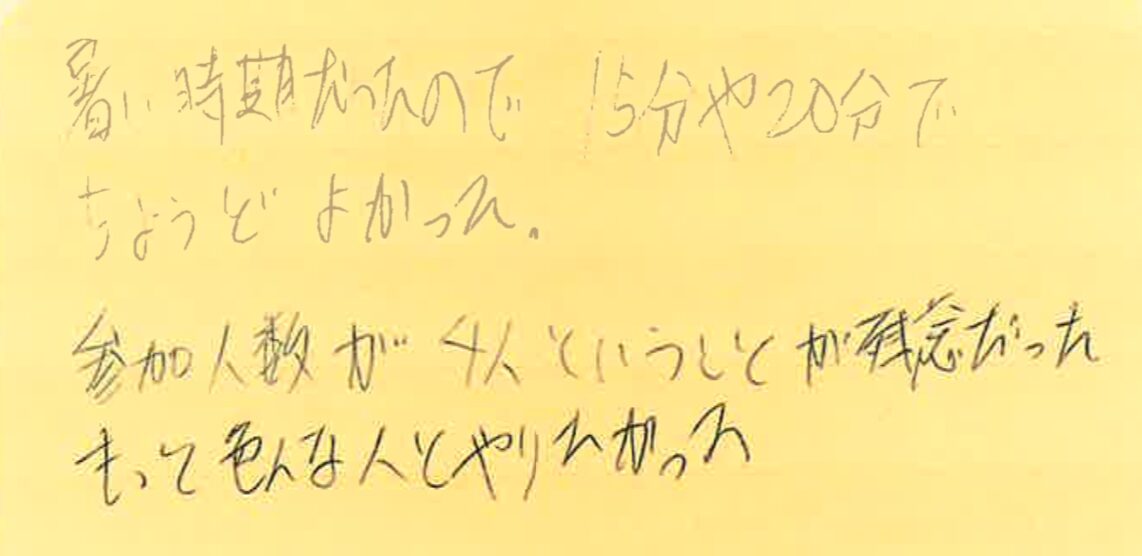 暑い時期だったので 15分や20分で
ちょうどよかった。
参加人数が 4人ということが残念だった
もって色んな人とやりたかった